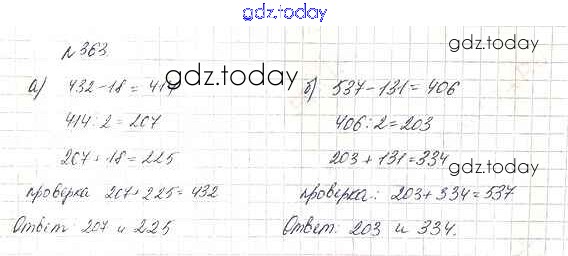 gdz.today
gdz.today
№363.
а) 432-18=414
gdz.today
б) 537-131=406
414:2=207
406:2=203
207+18=225
203+131=334
gdz.today
проверка 207+225=432
проверка: 203+334=537
Ответ: 207 и 225
Ответ: 203 и 334.